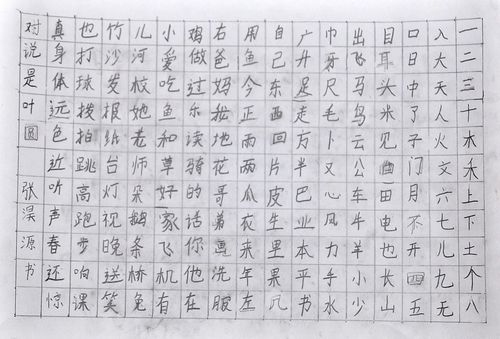 一二三十木禾上下土个八
入大天人火文六七儿九无
口日中了子门月不开四五
目耳头米见田电也长山
出飞马鸟云公车牛羊小少
巾牙尺毛卜又心风力手水
广升足走方半巴业本平书
自己东西回片皮生里果几
用鱼今正雨两瓜衣来年左
右爸妈松地花哥弟画洗服
鸡做过乐读骑的话你他在
小爱吃鱼和尊好家飞机有
儿河校她老师朵蝴条桥兔
竹沙发根纸台灯视晚送笑
也打球拨拍跳高跑步响课
真身体远色近听声春还惊
对说是叶圆 张昊源书